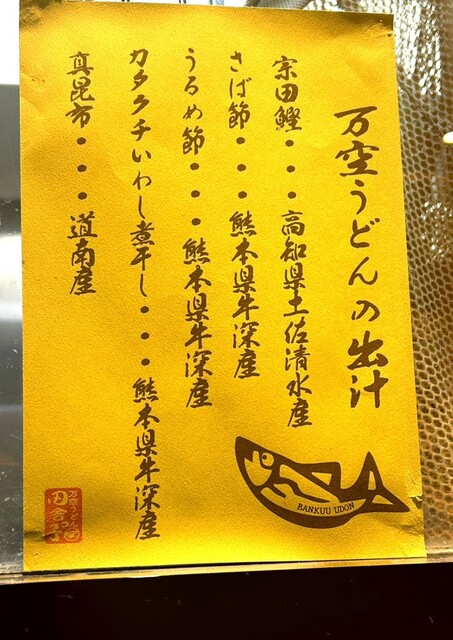 万空うどんの出汁
宗田鰹・・・高知県土佐清水産
さば節・・・熊本県牛深産
うるめ節・・・熊本県牛深産
カタクチいわし煮干し・・・熊本県牛深産
真昆布・・・道南産
BANKUU UDON
万空うどん
田舎っ子